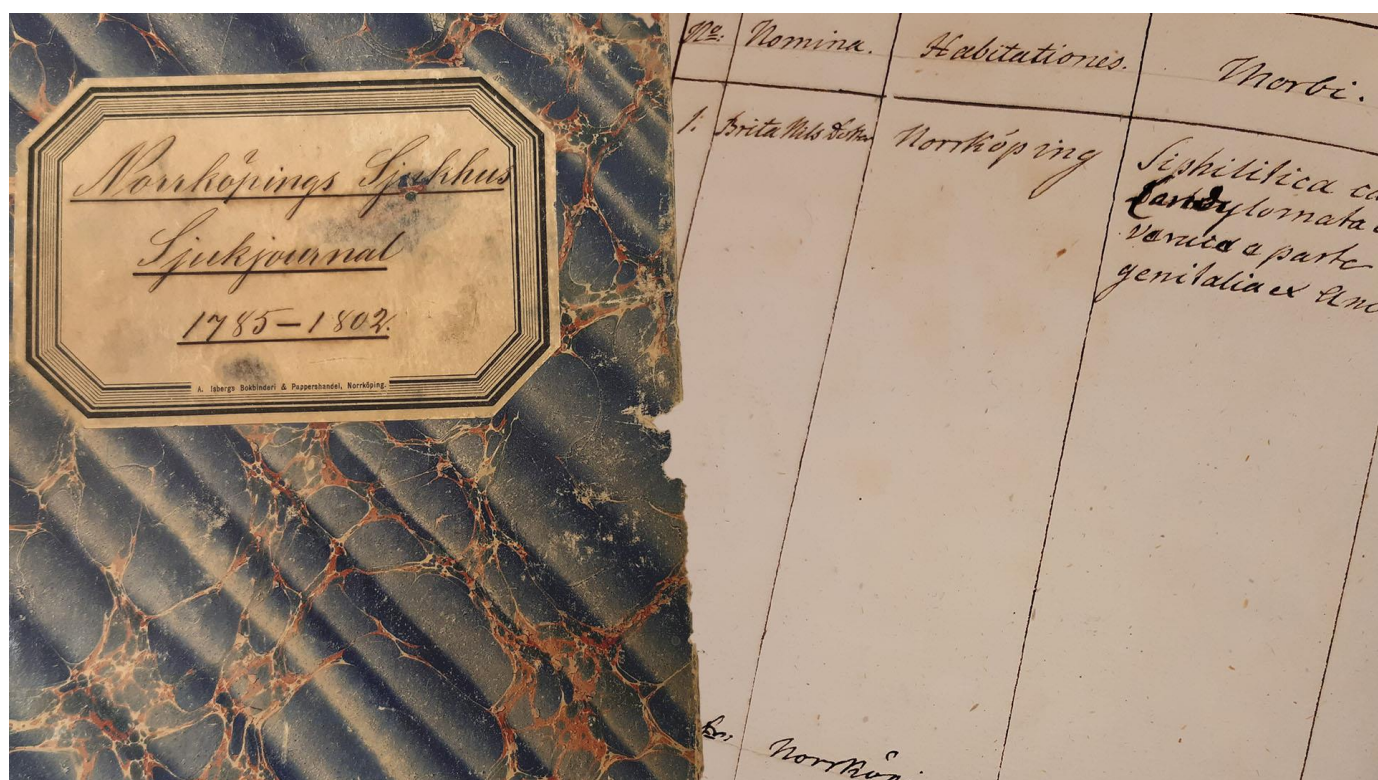 Norrköpings Sjukhus
Sjukjournal
1785–1802.
A. Isbergs Bokbinderi & Pappershandel, Norrköping.
No: Nomina. Habitationes. Morbi.
1. Brita Nils dotter Norrköping Siphilitica
Condylomata
parte
genitalia ex
Norrköpi